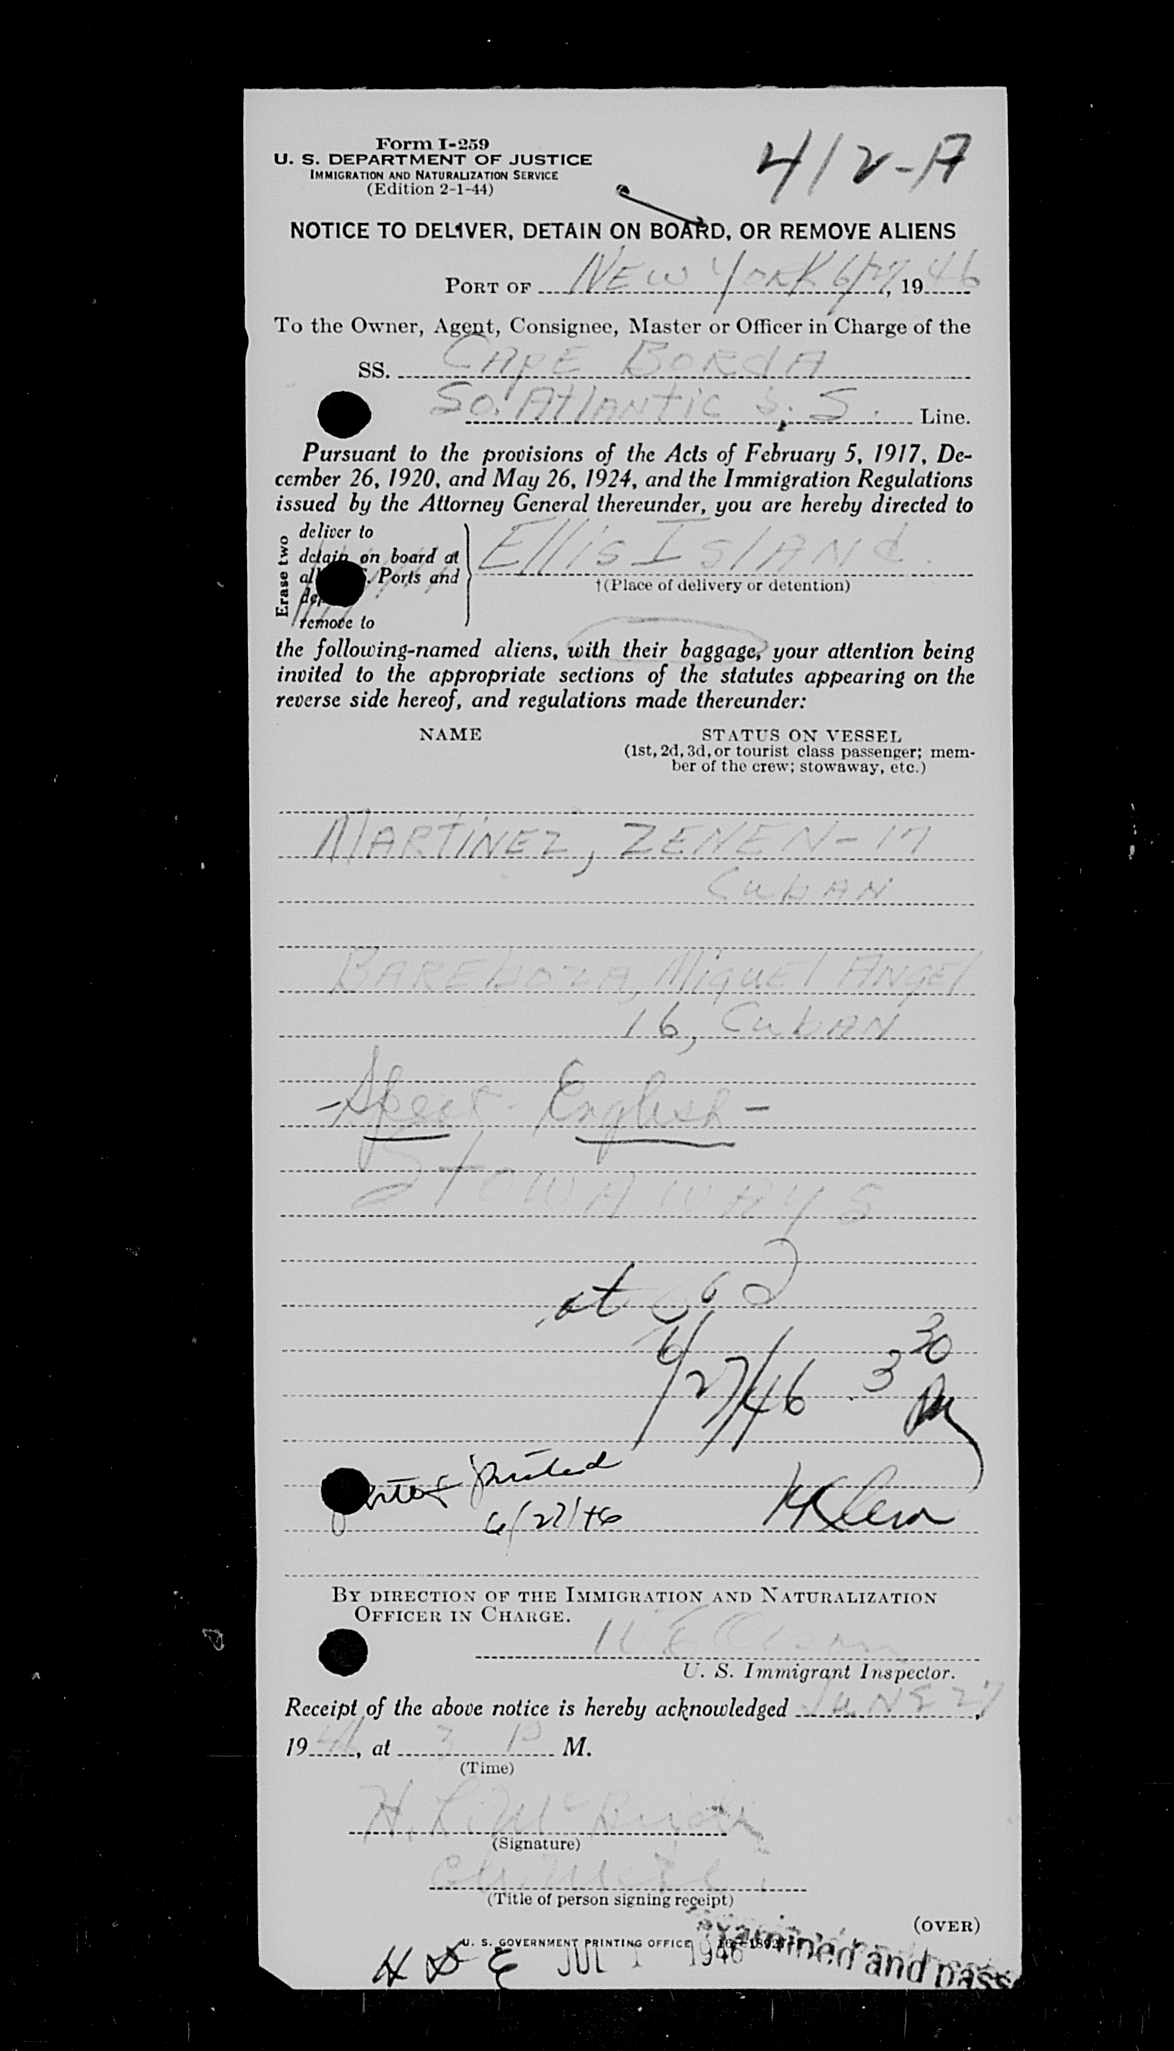 Form I-259
U. S. DEPARTMENT OF JUSTICE
IMMIGRATION AND NATURALIZATION SERVICE
(Edition 2-1-44)
412-A
NOTICE TO DELIVER, DETAIN ON BOARD, OR REMOVE ALIENS
PORT OF NEW YORK 6/27, 1946
To the Owner, Agent, Consignee, Master or Officer in Charge of the
SS. CAPE BORDA
So. Atlantic S. S. Line.
Pursuant to the provisions of the Acts of February 5, 1917, De-
cember 26, 1920, and May 26, 1924, and the Immigration Regulations
issued by the Attorney General thereunder, you are hereby directed to
Erase two
deliver to
detain on board at
Ports and
remove to
Ellis Island.
†(Place of delivery or detention)
the following-named aliens, with their baggage, your attention being
invited to the appropriate sections of the statutes appearing on the
reverse side hereof, and regulations made thereunder:
NAME STATUS ON VESSEL
(1st, 2d, 3d, or tourist class passenger; mem-
ber of the crew; stowaway, etc.)
MARTINEZ, ZENEN-17
CUBAN
Miguel Angel
16, Cuban
- English -
STOWAWAYS
at
6/27/46 3 30
PM
printed
6/27/46
BY DIRECTION OF THE IMMIGRATION AND NATURALIZATION
OFFICER IN CHARGE.
U. S. Immigrant Inspector.
Receipt of the above notice is hereby acknowledged JUNE 27,
1946, at 3 P M.
(Time)
(Signature)
(Title of person signing receipt)
(OVER)
U. S. GOVERNMENT PRINTING OFFICE
JUL 1 1946